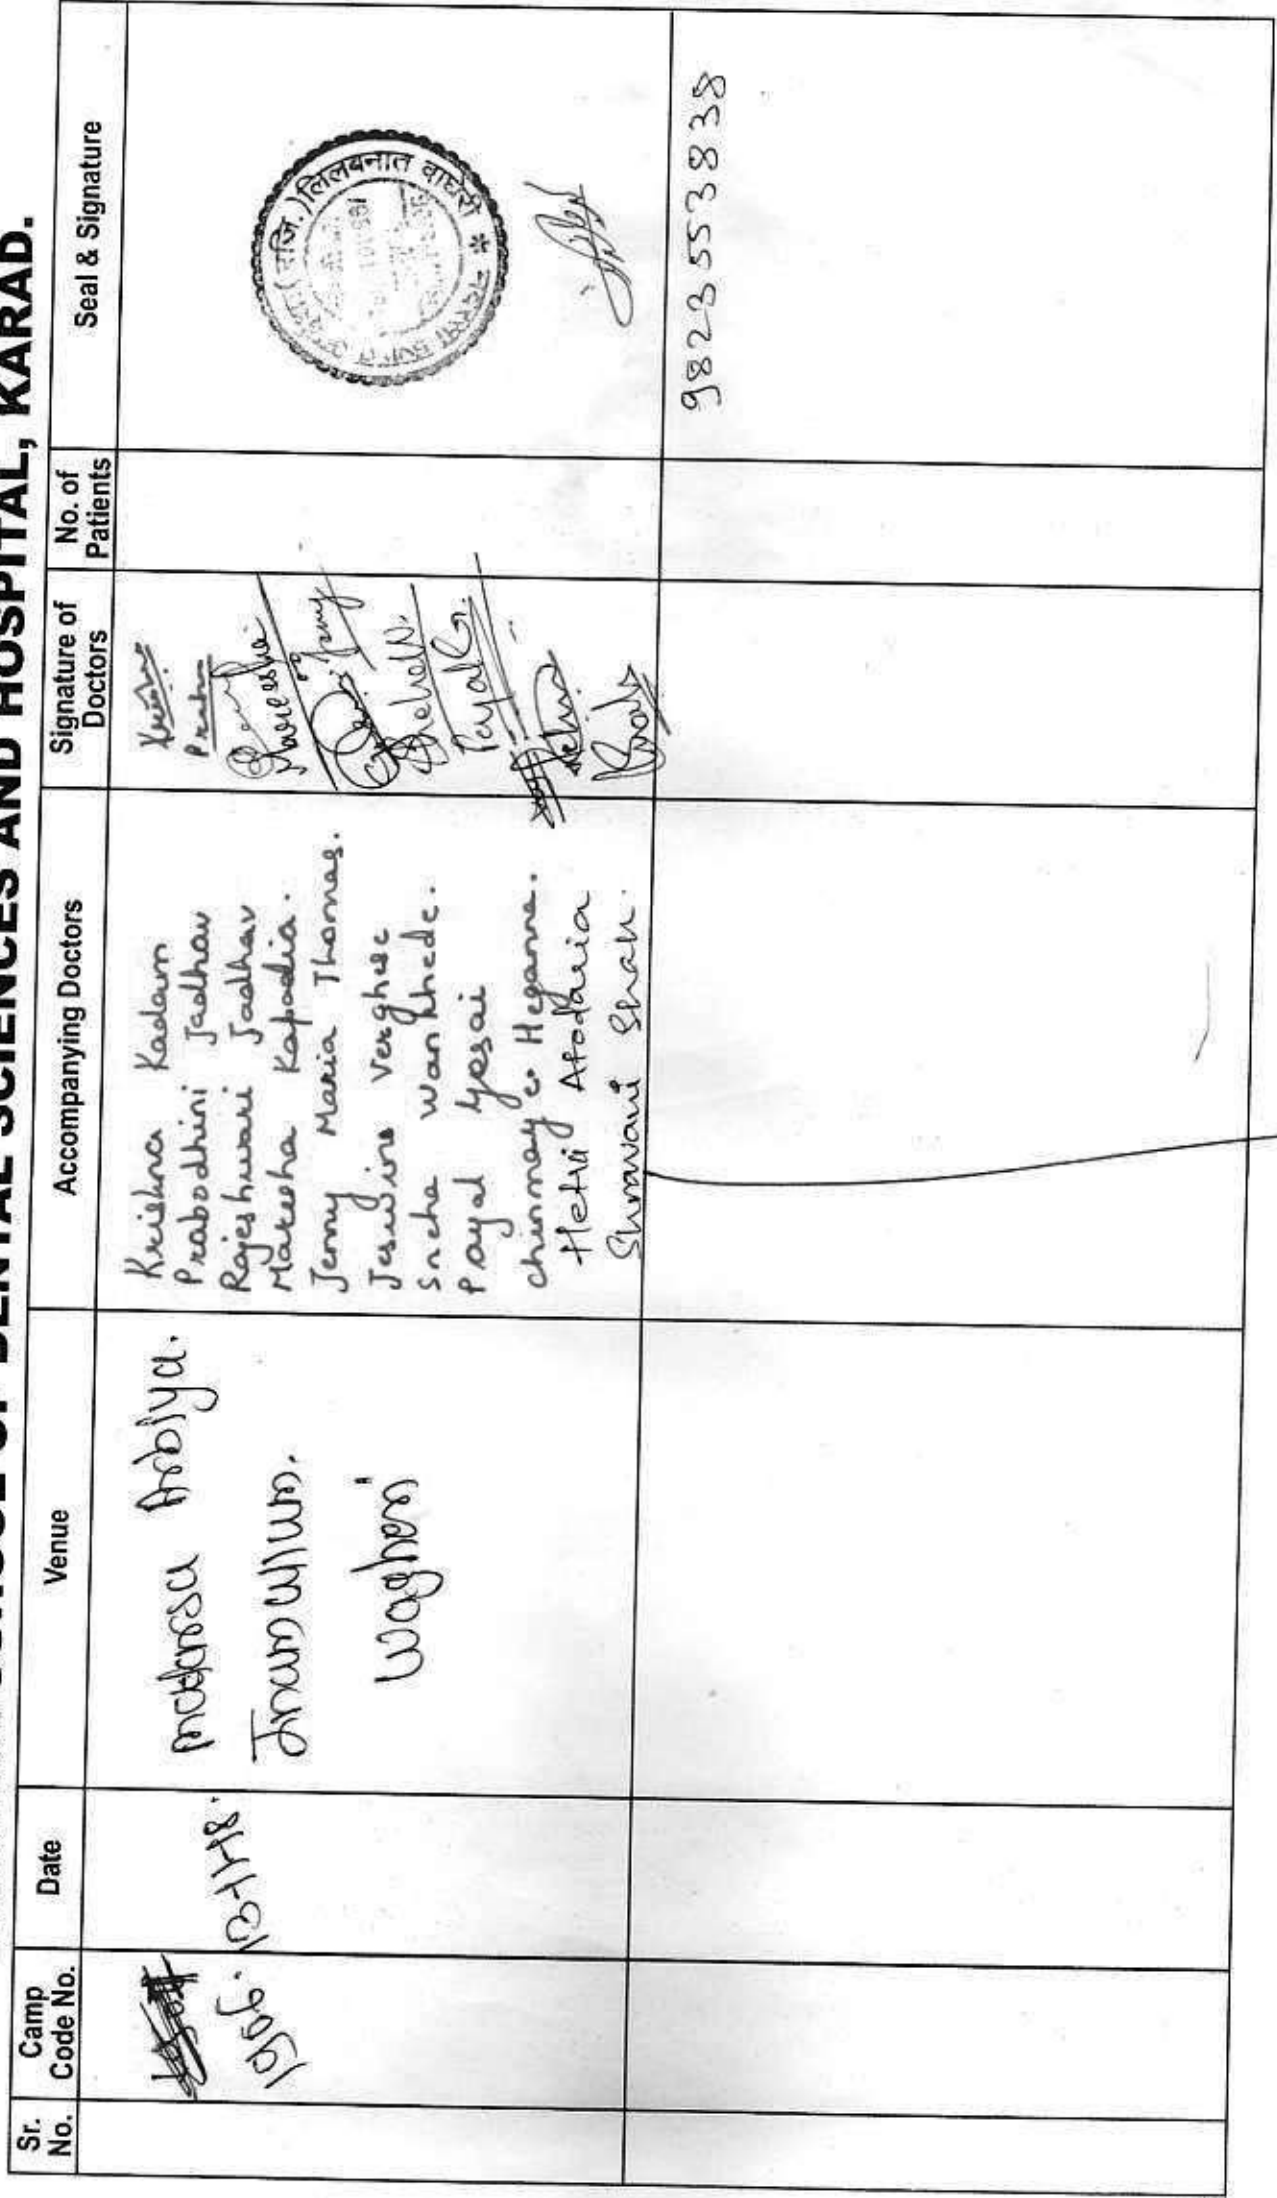 SCHOOL OF DENTAL SCIENCES AND HOSPITAL, KARAD.
Sr. No.
Camp Code No.
Date
Venue
Accompanying Doctors
Signature of Doctors
No. of Patients
Seal & Signature
1906.
13-11-18.
Madarsa Arbiya.
Inamullum.
Wagheri
Krishna Kadam
Prabodhini Jadhav
Rajeshwari Jadhav
Mareesha Kapadia.
Jenny Maria Thomas.
Jeswine Verghese
Sneha Wankhede.
Payal Yesai
Chinmay Heganna.
Hetvi Arodaria
Shravani Shah.
Krishna
Prabo
Mareesha
Jenny
SnehaW.
PayalG.
(रजि.) लिलबनात वाघेरी *
9823553838